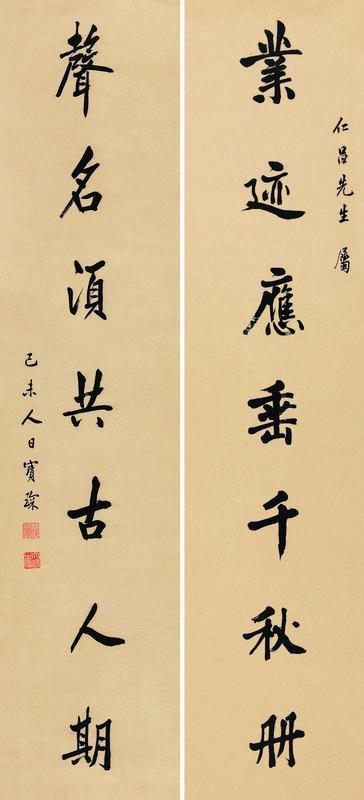 仁昌先生屬
業迹應垂千秋册
聲名須共古人期
己未人日寳琛